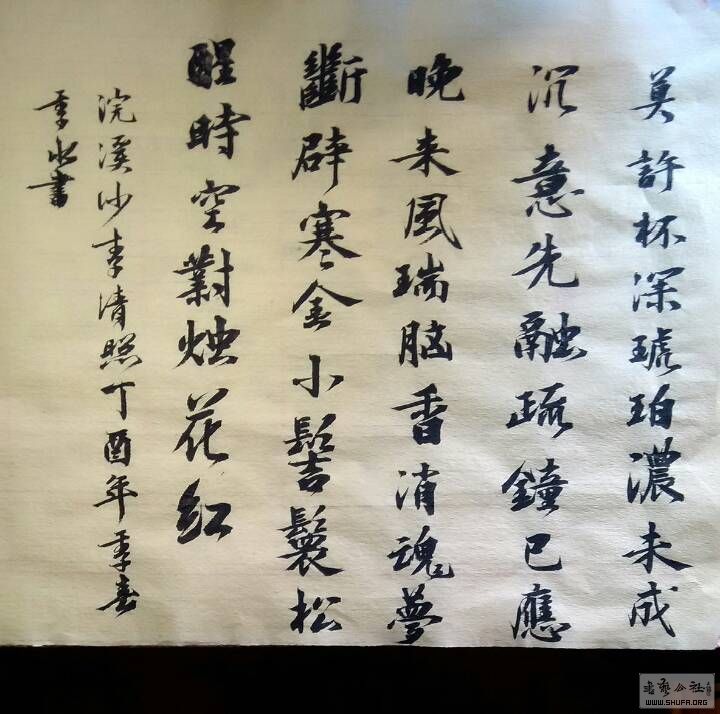 莫許杯深琥珀濃未成
沉意先融疏鐘已應
晚来風瑞脑香消魂夢
斷辟寒金小髻鬟松
醒時空對烛花红
浣溪沙李清照丁酉年季春
季水書
書藝公社
WWW.SHUFA.ORG